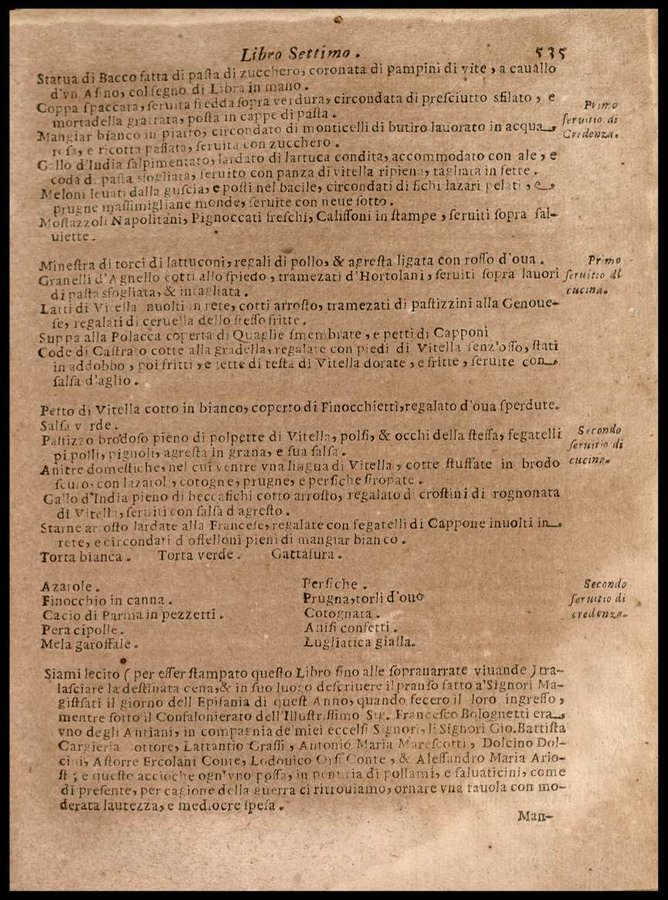 Libro Settimo. 535
Statua di Bacco fatta di pasta di zucchero, coronata di pampini di vite, a cauallo
d'vn Asino, col segno di Libra in mano.
Coppa spaccata, seruita fredda sopra verdura, circondata di presciutto sfilato, e
mortadella grattata, posta in cappe di pasta.
Primo
seruitio di
Credenza.
Mangiar bianco in piatto, circondato di monticelli di butiro lauorato in acqua
rosa, e ricotta passata, seruita con zucchero.
Gallo d'India salpimentato, lardato di lattuca condita, accommodato con ale, e
coda di pasta sfogliata, seruito con panza di vitella ripiena, tagliata in fette.
Meloni leuati dalla guscia, e posti nel bacile, circondati di fichi lazari pelati, e
prugne massimigliane monde, seruite con neue sotto.
Mostazzoli Napolitani, Pignoccati freschi, Calissoni in stampe, seruiti sopra sal-
uiette.
Minestra di torci di lattuconi, regali di pollo, & agresta ligata con rosso d'oua.
Primo
seruitio di
cucina.
Granelli d'Agnello cotti allo spiedo, tramezati d'Hortolani, seruiti sopra lauori
di pasta sfogliata, & intagliata.
Latti di Vitella inuolti in rete, cotti arrosto, tramezati di pastizzini alla Genoue-
se, regalati di ceruella dello stesso fritte.
Suppa alla Polacca coperta di Quaglie smembrate, e petti di Capponi
Code di Castrato cotte alla gradella, regalate con piedi di Vitella senz'osso, stati
in addobbo, poi fritti, e fette di testa di Vitella dorate, e fritte, seruite con
salsa d'aglio.
Petto di Vitella cotto in bianco, coperto di Finocchietti, regalato d'oua sperdute.
Salsa verde.
Secondo
seruitio di
cucina.
Pastizzo brodoso pieno di polpette di Vitella, polsi, & occhi della stessa, fegatelli
pi polli, pignoli, agresta in grana, e sua salsa.
Anitre domestiche, nel cui ventre vna lingua di Vitella, cotte stuffate in brodo
scuro con lazarol, cotogne, prugne, e persiche siropate.
Gallo d'India pieno di beccafichi cotto arrosto, regalato di crostini di rognonata
di Vitella, seruiti con salsa d'agresto.
Starne arrosto lardate alla Francese, regalate con fegatelli di Cappone inuolti in
rete, e circondati d'offelloni pieni di mangiar bianco.
Torta bianca. Torta verde. Gattafura.
Azarole. Persiche.
Finocchio in canna. Prugna, torli d'ouo
Cacio di Parma in pezzetti. Cotognata.
Pera cipolle. Anisi confetti.
Mela garoffale. Lugliatica gialla.
Secondo
seruitio di
credenza.
Siami lecito (per esser stampato questo Libro sino alle sopranarrate viuande) tra-
lasciare la destinata cena, & in suo luogo descriuere il pranso fatto a'Signori Ma-
gistrati il giorno dell Epifania di quest'Anno, quando fecero il loro ingresso,
mentre sotto il Confalonierato dell'Illustrissimo Sig. Francesco Bolognetti era
vno degli Antiani, in compagnia de'miei eccelsi Signori, li Signori Gio. Battista
Cargieria Dottore, Lattantio Grassi, Antonio Maria Marescotti, Dolcino Dol-
cini, Astorre Ercolani Conte, Lodouico Orsi Conte, & Alessandro Maria Ario-
sti; e questo accioche ogn'vno possa, in penuria di pollami, e saluaticini, come
di presente, per cagione della guerra ci ritrouiamo, ornare vna tauola con mo-
derata lautezza, e mediocre spesa.
Man-